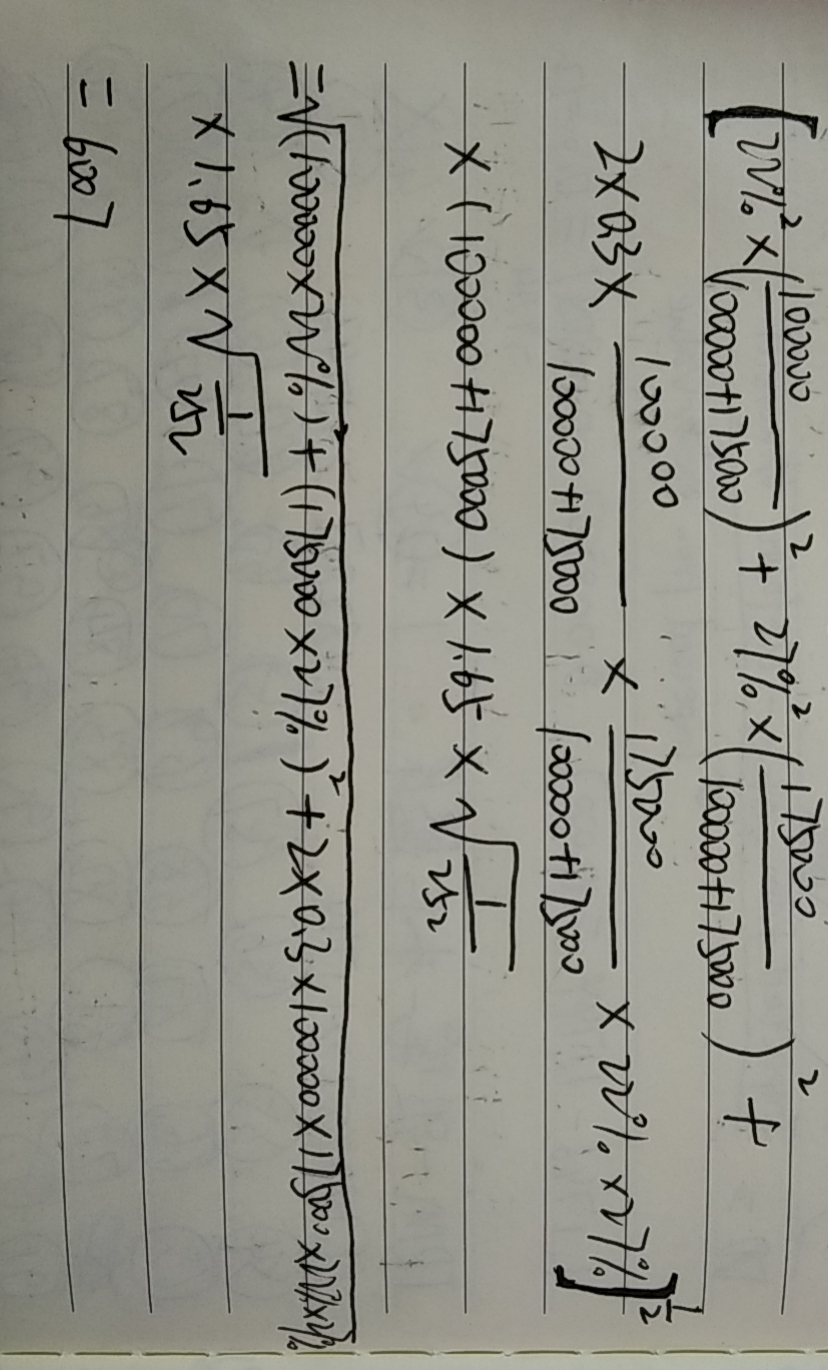 [22%² × (100000/(100000+175000))² + 27%² × (175000/(100000+175000))² +
2×0.3× 100000/(100000+175000) × 175000/(100000+175000) × 22% × 27%]^½
× (100000+175000) × 1.65 × √(1/252)
=√((100000×22%)+(175000×27%)²+2×0.3×100000×175000×22%×27%)
× 1.65 × √(1/252)
= 6007